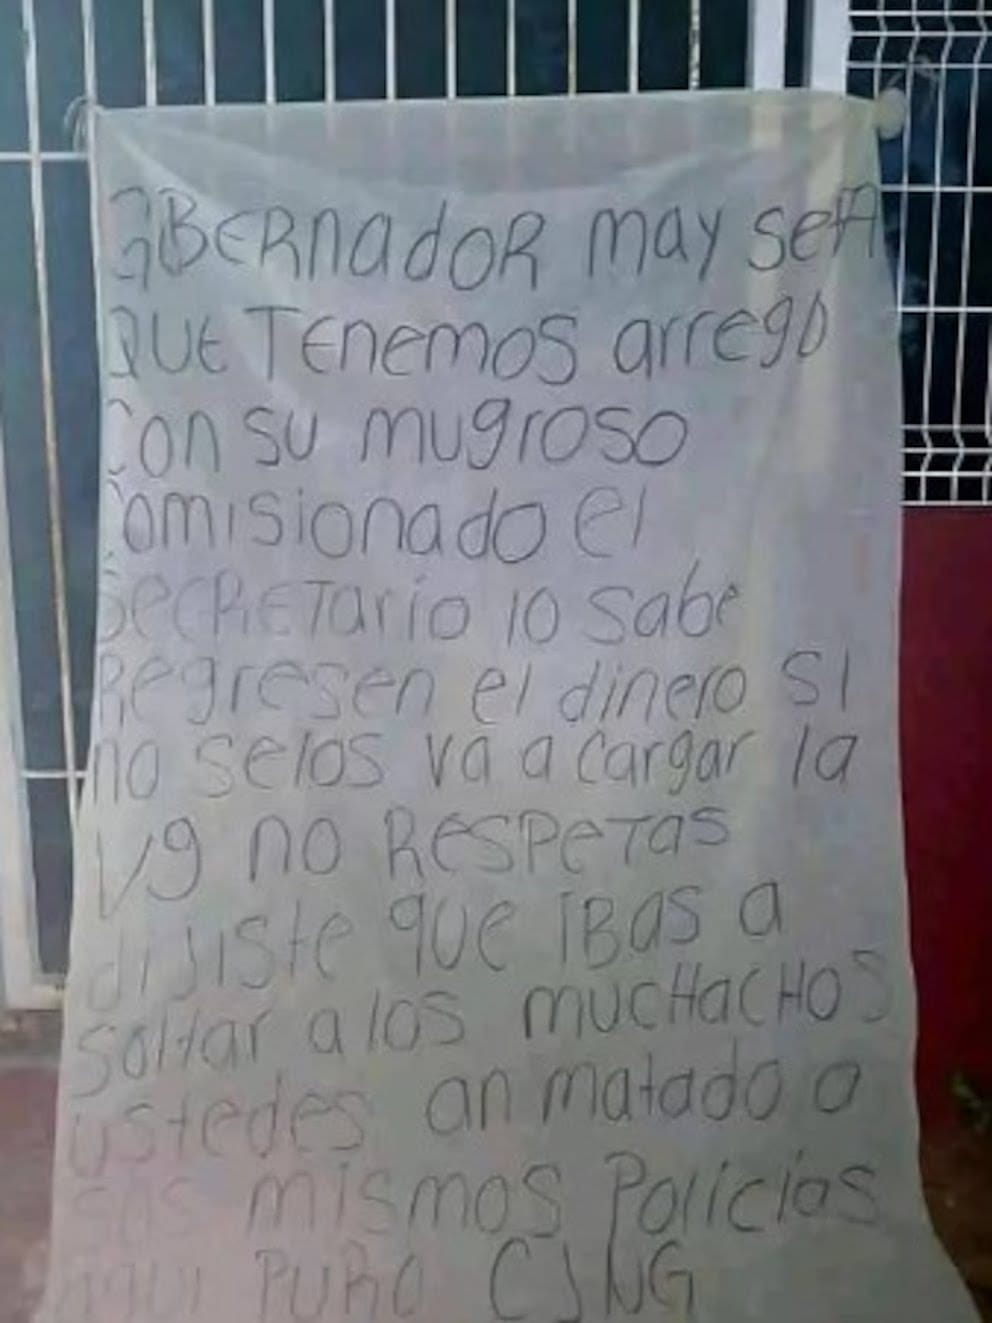 GOBERNADOR MAY SEPA
QUE TENEMOS arrego
Con su mugroso
comisionado el
SecRETario lo sabe
Regresen el dinero SI
no selos va a cargar la
Vg no RESPETAS
dijiste que iBas a
Soltar a los mucHacHos
ustedes an matado a
sus mismos Policias
AQUI PURO CJNG